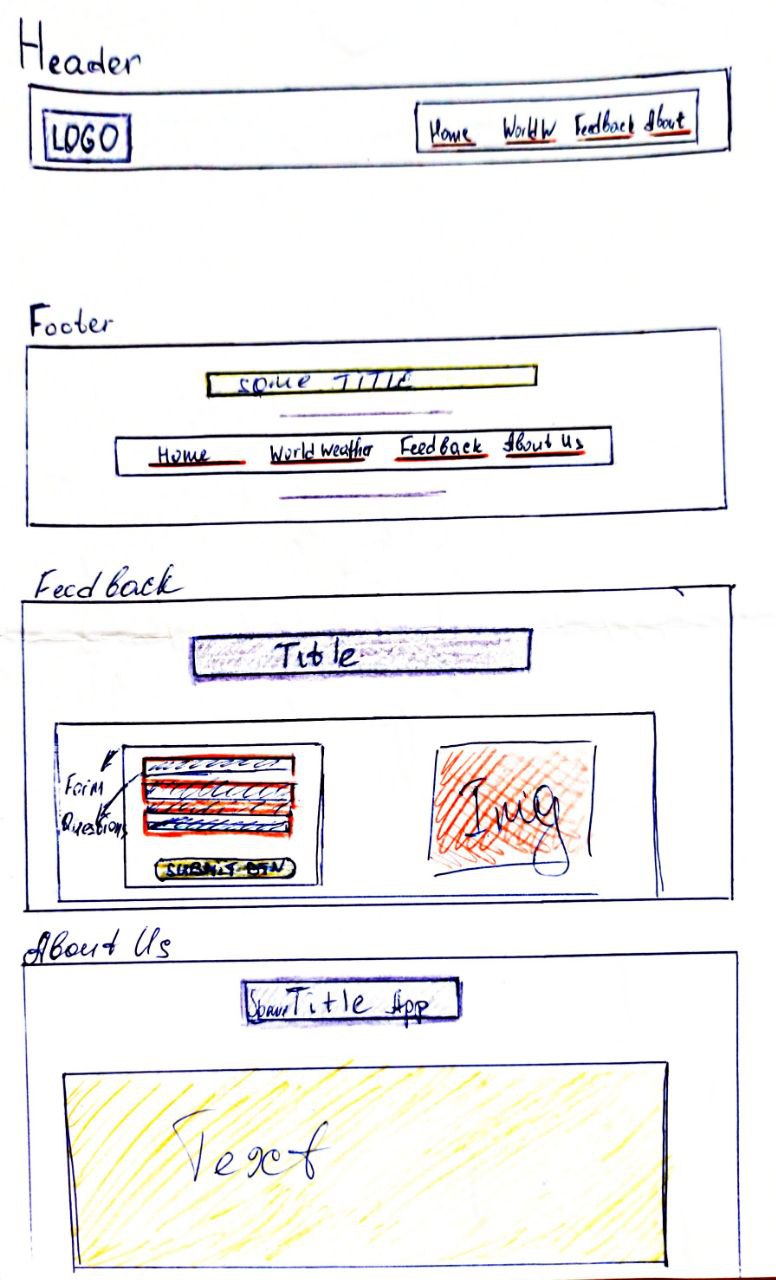 Header
LOGO Home WorldW Feedback About
Footer
SOME TITLE
Home World weather Feedback About Us
Feedback
Title
Form
Questions
SUBMIT BTN
Img
About Us
Some Title App
Text